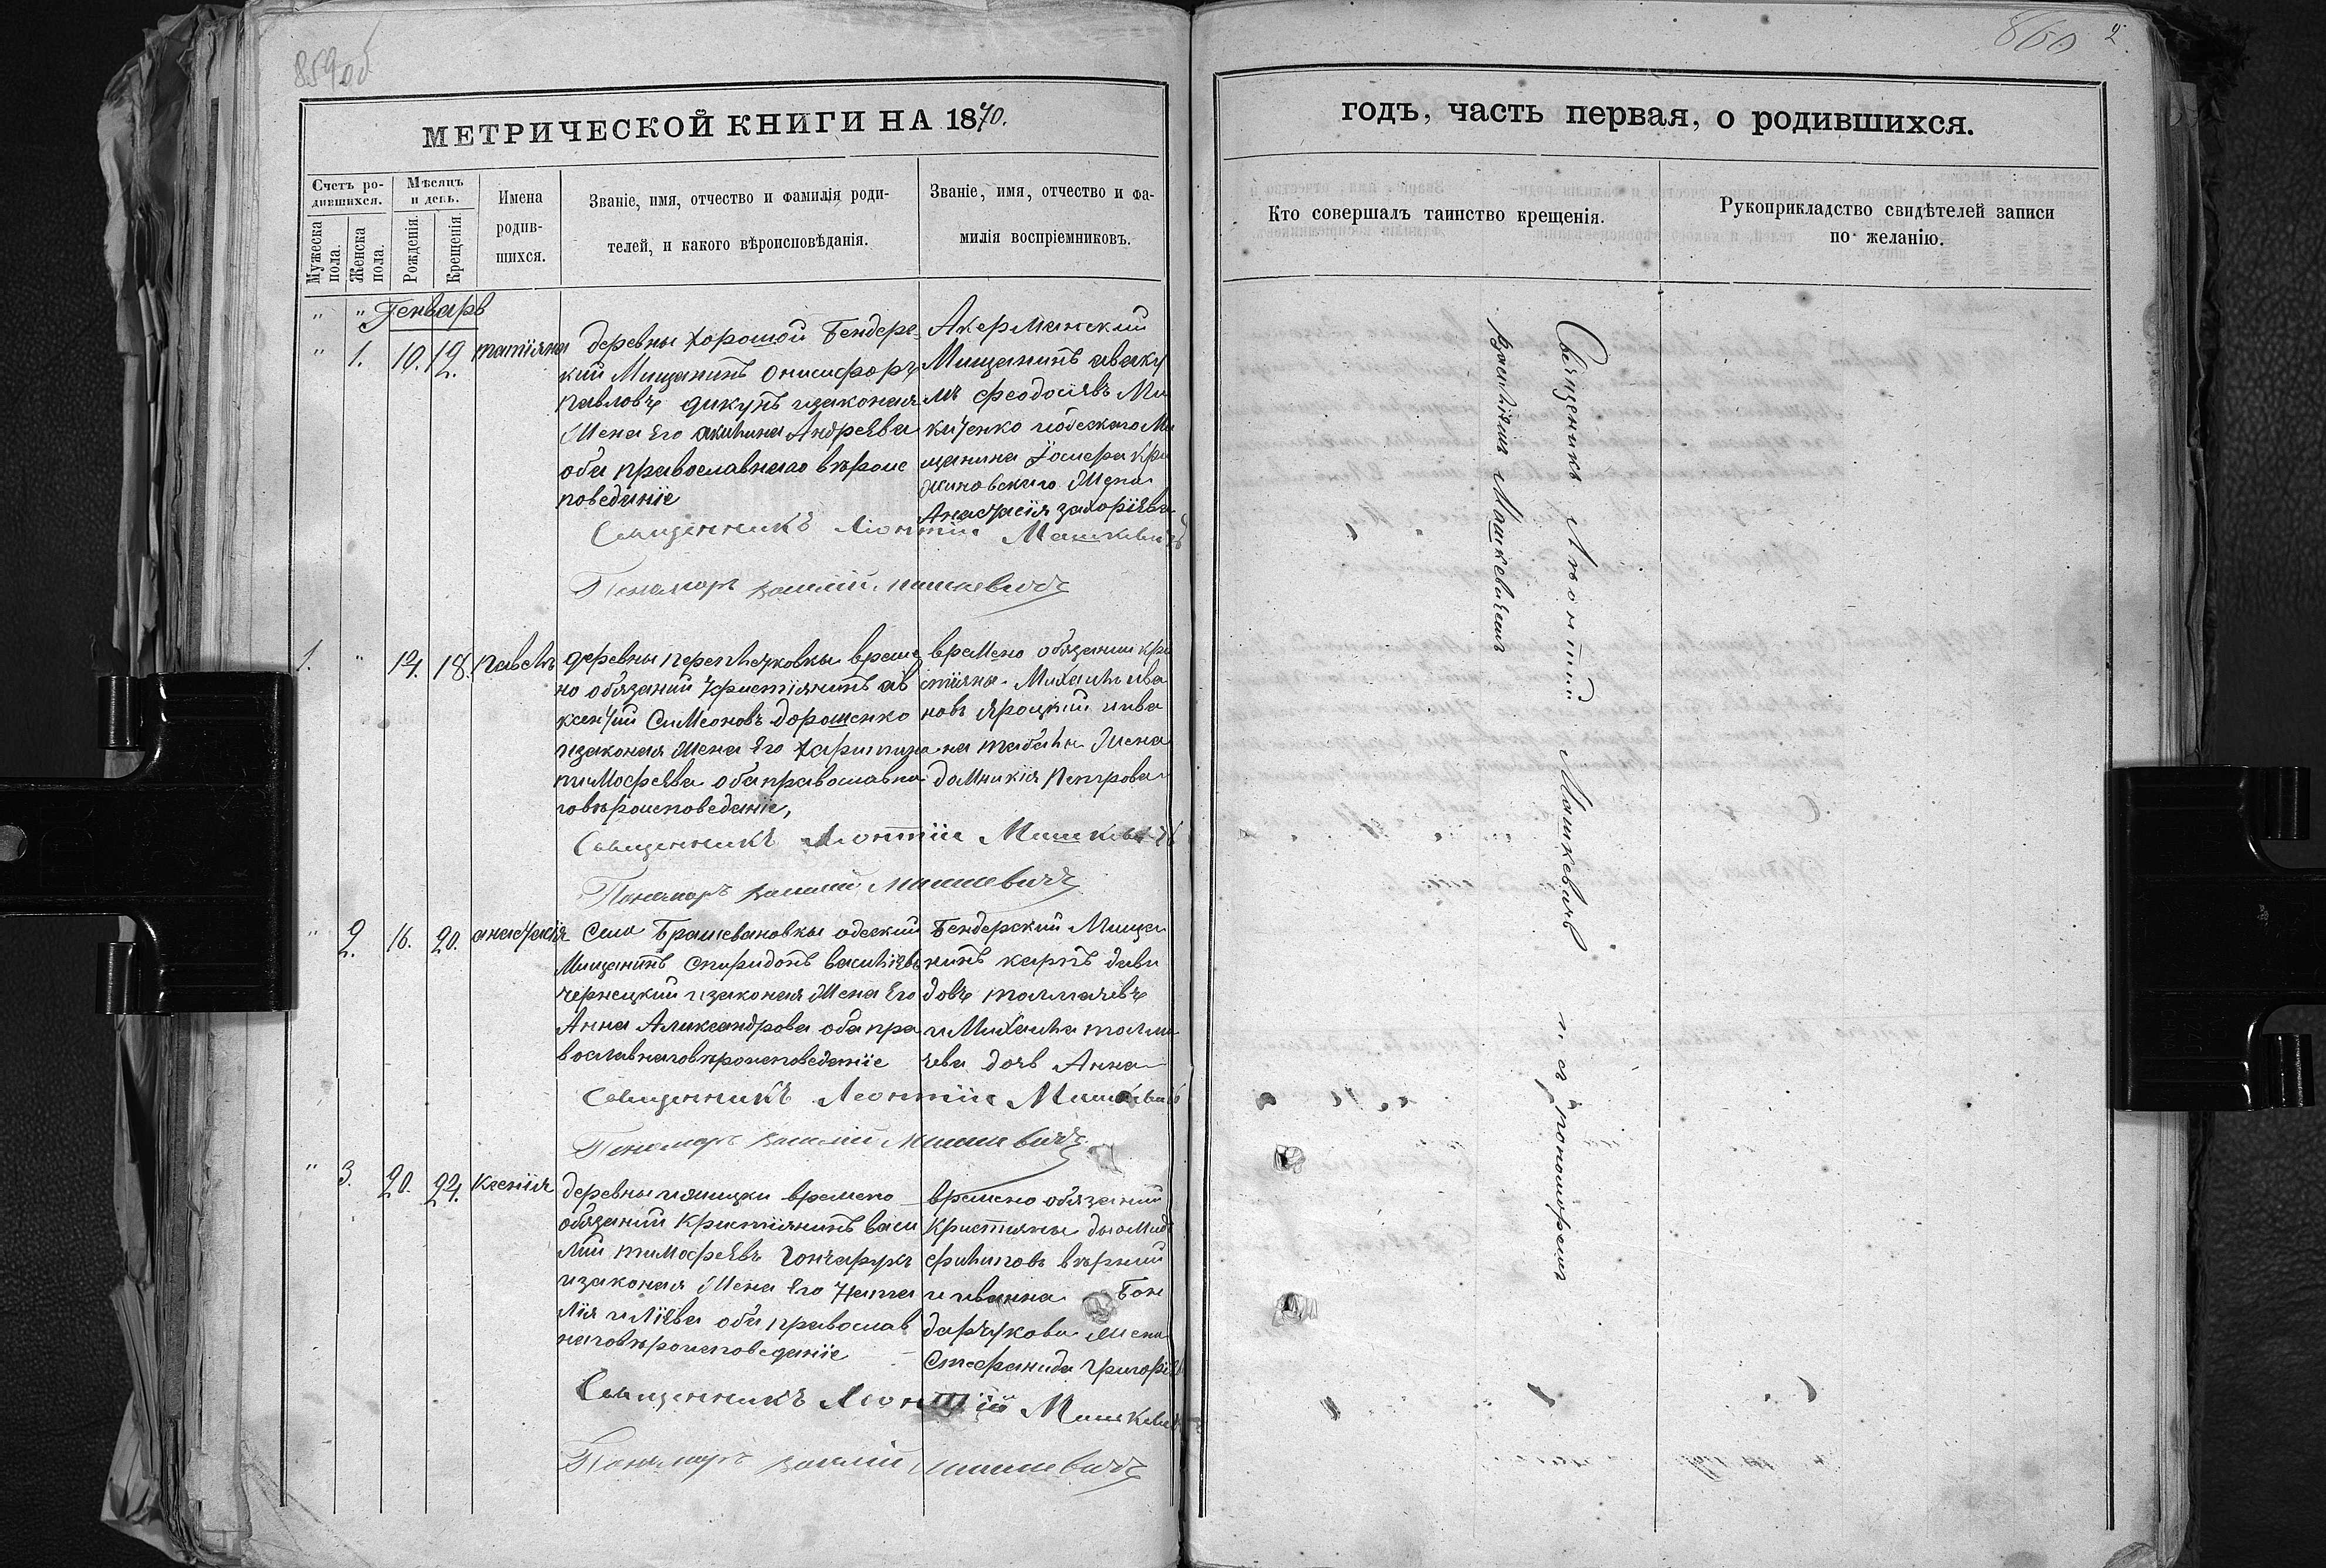 859об
МЕТРИЧЕСКОЙ КНИГИ НА 1870.
Счетъ ро-
дившихся.
Мужеска
пола.
Женска
пола.
Мѣсяцъ
и день.
Рожденія.
Крещенія.
Имена
родив-
шихся.
Званіе, имя, отчество и фамилія роди-
телей, и какого вѣроисповѣданія.
Званіе, имя, отчество и фа-
милія воспріемниковъ.
" " Генварь
" 1. 10. 12. татіяна
деревны хорошой Бендерс
кий Мищанинъ Онисифоръ
павловъ дикунъ изаконая
Жена Его акилина Андреева
оба православнаго вѣроис
поведание
Акерманский
Мищанинъ аваку
мъ феодосиевъ Ми
киченко иодескаго Ми
щанина
Жена
Анастасія захоріева
Священникъ Леонтии Машкевичъ
Пономарь василий машкевичъ
1. " 14. 18. павелъ
деревны перепелячковкы време
но обязаний християнинъ ав
ксентий Симеоновъ дорошенко
изаконая Жена Его харитина
тимофеева оба православна
говѣроисповедание,
времено обязании кри
стияны Михаилъ ива
новъ яроцкий иива
на табалы Жена
домникия Петрова
Священникъ Леонтии Машкевичъ
Пономарь василий Машкевичъ
" 2. 16. 20. анастасія
Села Брашевановкы одеский
Мищанинъ Спиридонъ василиевъ
чернецкий изаконая Жена Его
Анна Александрова оба пра
вославнаговѣроисповедание
Бендерский Мища
нинъ карпъ дави
довъ толмачевъ
и Михаила толма
чева дочь Анна
Священникъ Леонтии Машкевичъ
Пономарь василий Машкевичъ
" 3. 20. 24. Ксения
деревны времено
обязаний Християнинъ васи
лий тимофеевъ Гончарукъ
изаконая Жена Его Ната
лія илиева оба православ
наговѣроисповедание
времено обязаний
Кристияны диомидъ
филиповъ вѣрний
и иванна Бон
дарчукова Жена
Стефанида григориева
Священникъ Леонтій Машкевичъ
Пономарь василий Машкевичъ
860 2.
годъ, часть первая, о родившихся.
Кто совершалъ таинство крещенія.
Рукоприкладство свидѣтелей записи
по желанію.
Священникъ Леонтий Машкевичъ и съ пономоремъ
василиемъ Машкевичемъ